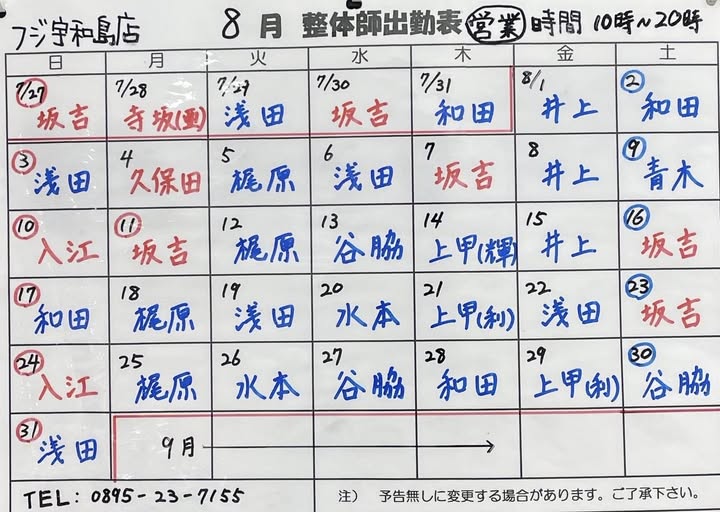 フジ宇和島店 8月 整体師出勤表 営業時間 10時~20時
日 月 火 水 木 金 土
7/27 7/28 7/29 7/30 7/31 8/1 2
坂吉 寺坂(亜) 浅田 坂吉 和田 井上 和田
3 4 5 6 7 8 9
浅田 久保田 梶原 浅田 坂吉 井上 青木
10 11 12 13 14 15 16
入江 坂吉 梶原 谷脇 上甲(輝) 井上 坂吉
17 18 19 20 21 22 23
和田 梶原 浅田 水本 上甲(利) 浅田 坂吉
24 25 26 27 28 29 30
入江 梶原 水本 谷脇 和田 上甲(利) 谷脇
31
浅田 9月
TEL: 0895-23-7155 注) 予告無しに変更する場合があります。ご了承下さい。